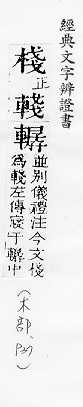 經典文字辨證書
棧正輚轏並別儀禮注今文棧
為輚左傳寢于轏中
(木部, P27)